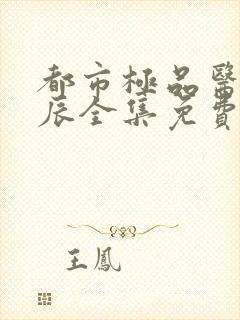 都市極品醫
辰全集免費
王鳳